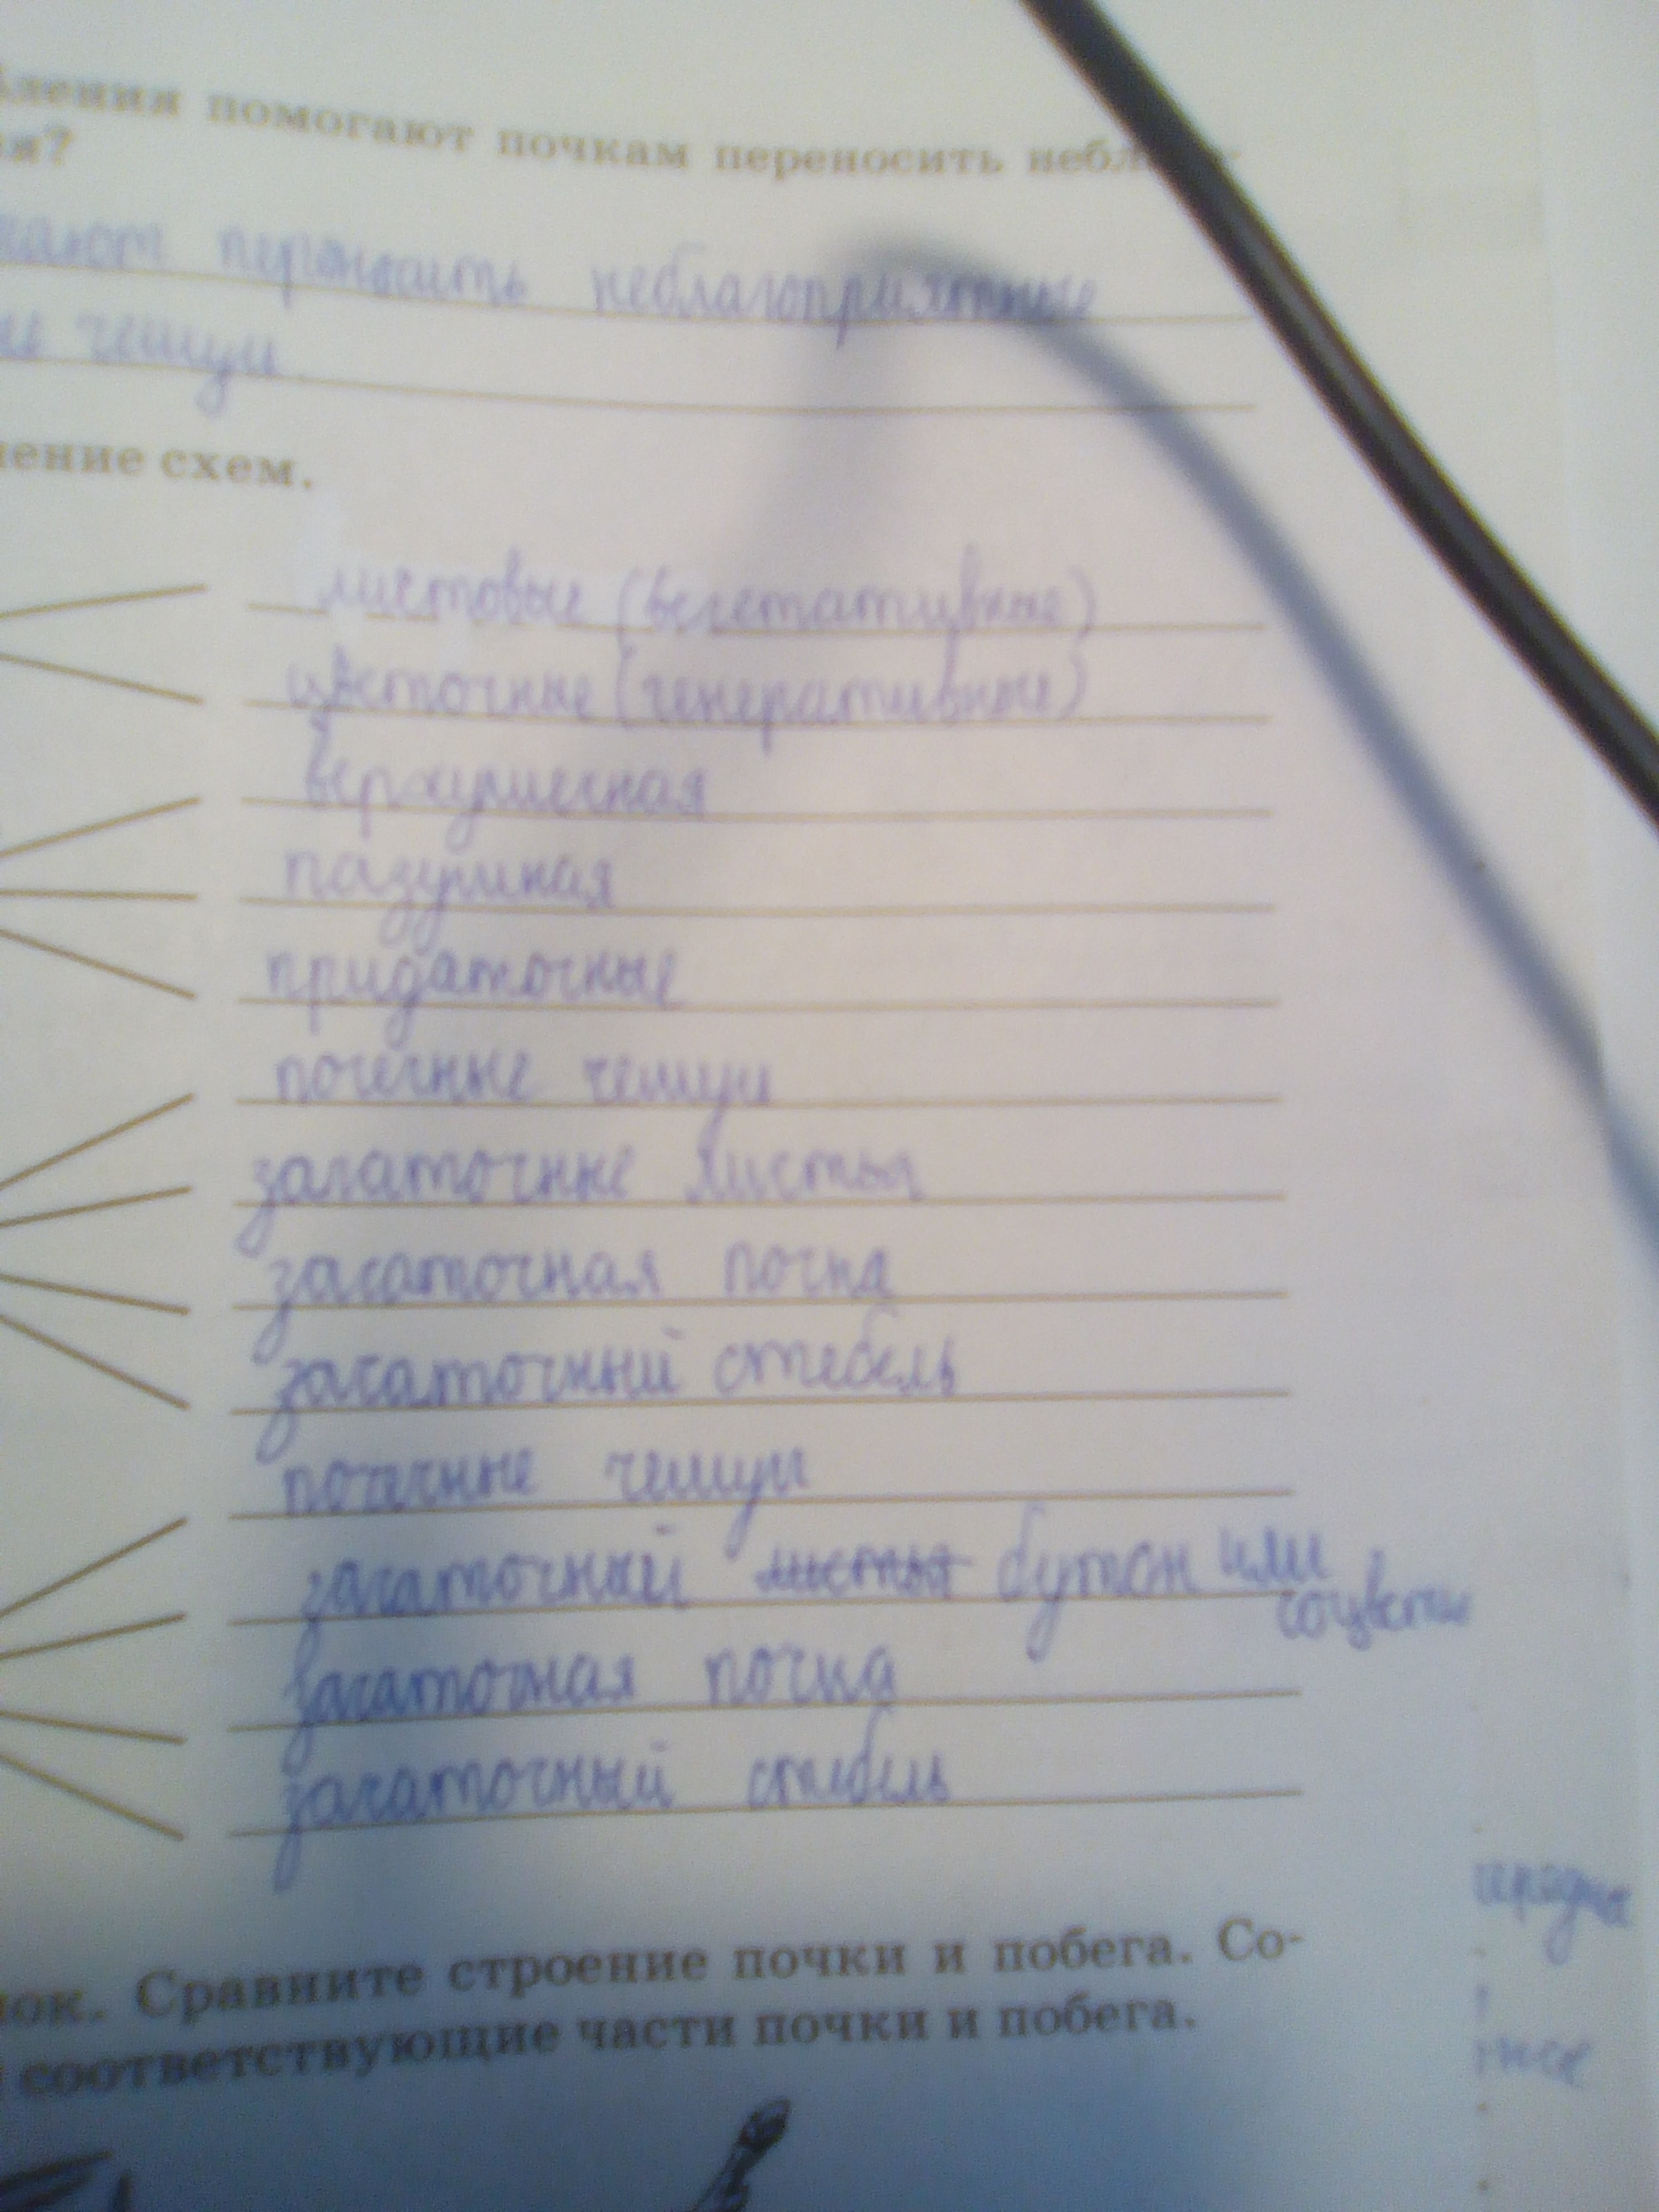 бления помогают почкам переносить небла
ия?
гают переносить неблагоприятные
ые чешуи
нение схем.
листовые (вегетативные)
цветочные (генеративные)
верхушечная
пазушная
придаточные
почечные чешуи
зачаточные листья
зачаточная почка
зачаточный стебель
почечные чешуи
зачаточный листья бутон или
соцветие
зачаточная почка
зачаточный стебель
нок. Сравните строение почки и побега. Со-
соответствующие части почки и побега.